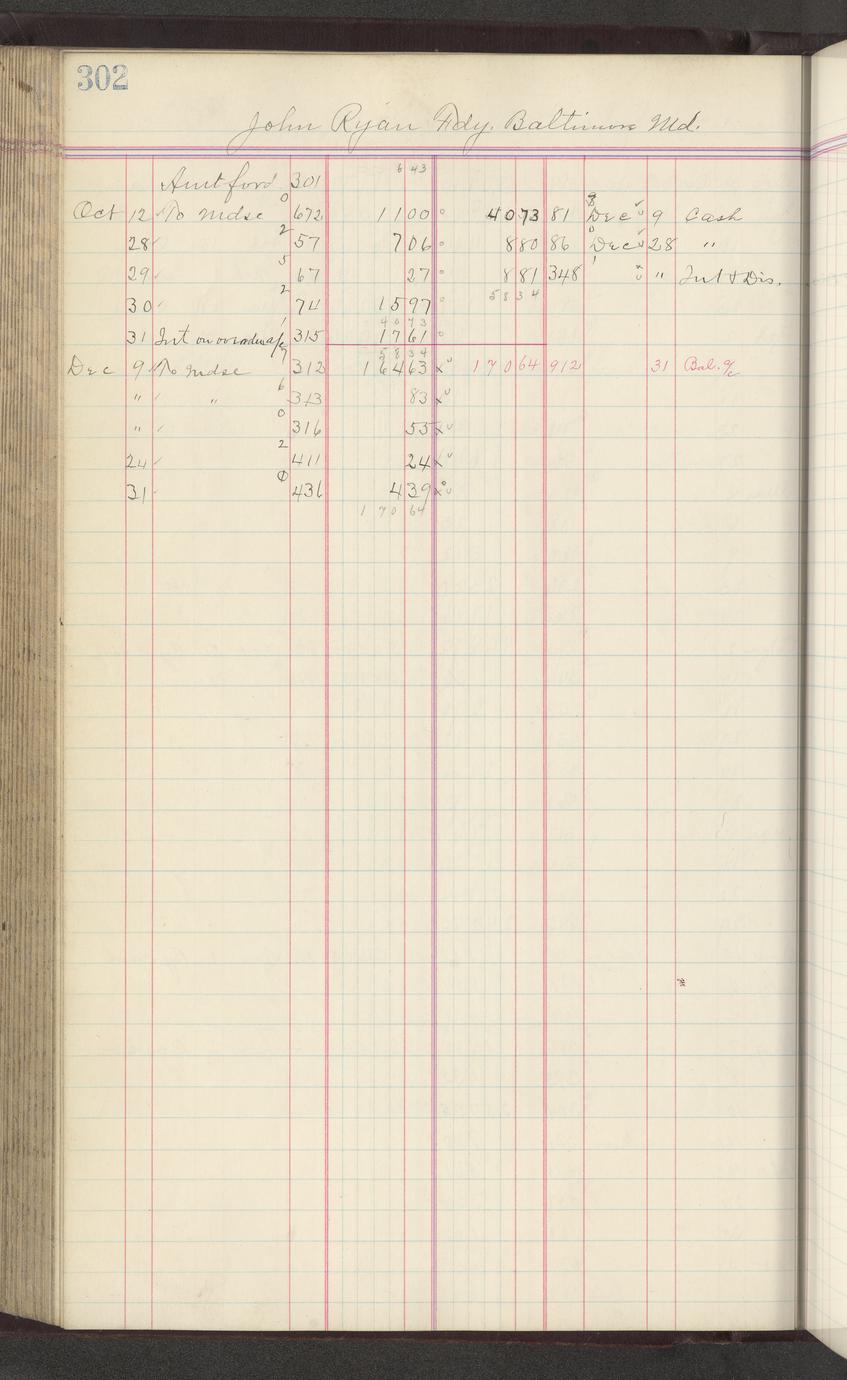 302
John Ryan Fdy. Baltimore Md.
Amt ford 301 6 43
Oct 12 To Mdse 0 672 1100 4073 81 8 Dec 9 Cash
28 2 57 706 880 86 0 Dec 28 "
29 5 67 27 881 348 1 " Int & Dis.
30 2 74 1597 5834
4073
31 Int on overdue a/c 1 315 1761
5834
Dec 9 To Mdse 7 312 16463 x 17064 912 31 Bal. a/c
" " 6 313 83 x
" 0 316 55 x
24 2 411 24 x
31 0 436 439 x
17064